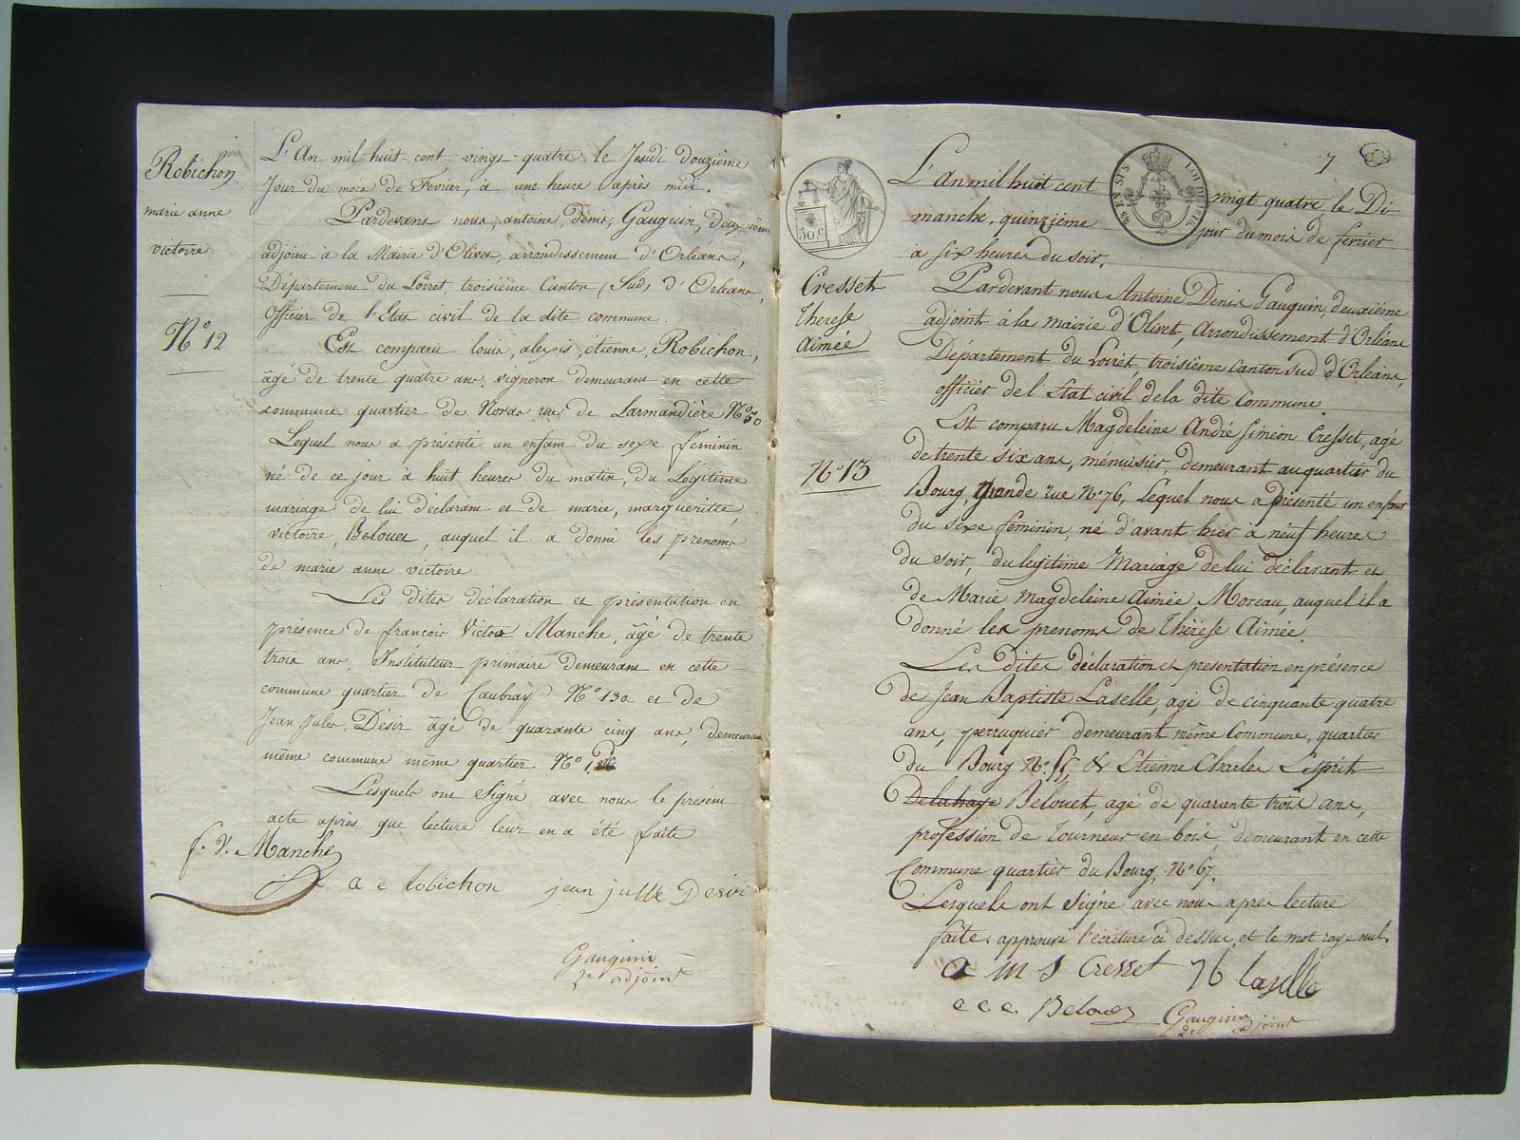 Robichon
marie anne
victoire
N° 12
L'An mil huit cent vingt quatre le Jeudi douzième
Jour du mois de Fevrier, à une heure après midi.
Pardevant nous, antoine, Denis, Gauguin, deuxième
adjoint à la Mairie d'Olivet, arrondissement d'Orléans,
Département du Loiret troisième Canton (Sud) d'Orléans,
Officier de l'Etat civil de la dite commune.
Est comparu louis, alexis, etienne, Robichon,
âgé de trente quatre ans, vigneron demeurant en cette
commune quartier de Nord rue de Larmandière N° 50
Lequel nous a présenté un enfant du sexe féminin
né de ce jour à huit heures du matin, du Légitime
mariage de lui déclarant et de marie, margueritte,
victoire, Belouet, auquel il a donné les prenoms
de marie anne victoire
Les dites déclaration et présentation en
présence de francois Victor Manche, âgé de trente
trois ans, Instituteur primaire demeurant en cette
commune quartier de Caubray N° 130 et de
Jean Jules Désir âgé de quarante cinq ans, demeurant
même commune même quartier N°
Lesquels ont signé avec nous le présent
acte après que lecture leur en a été faite
f. V. Manche
a e Robichon jean julle Desir
Gauguin
2e adjoint
7
50 c
Cresset
Therese
Aimée
N° 13
L'An mil huit cent vingt quatre, le Di-
manche, quinzième jour du mois de fevrier
à six heures du soir.
Pardevant nous Antoine Denis Gauguin, deuxième
adjoint à la mairie d'Olivet, Arrondissement d'Orléans
Département du Loiret, troisième Canton Sud d'Orleans,
officier de l'Etat civil de la dite Commune.
Est comparu Magdeleine André Simeon Cresset, agé
de trente six ans, ménuisier, demeurant au quartier du
Bourg, grande rue N° 76, Lequel nous a présenté un enfant
du sexe féminin, né d'avant hier à neuf heures
du soir, du legitime Mariage de lui déclarant et
de Marie Magdeleine Aimée Moreau, auquel il a
donné les prenoms de Thérèse Aimée.
Les dites déclaration et presentation en présence
de Jean Baptiste Laselle, agé de cinquante quatre
ans, perruquier demeurant même Commune, quartier
du Bourg N° 55, & Etienne Charles Esprit
Delahaye Belouet, agé de quarante trois ans,
profession de Tourneur en bois, demeurant en cette
Commune quartier du Bourg, N° 67.
Lesquels ont signé avec nous apres lecture
faite, approuvé l'écriture ci dessus, et le mot rayé nul.
a M S Cresset J b Laselle
e c e Belouet
Gauguin
2e adjoint